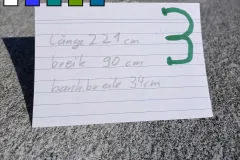 3
Länge 221 cm
breite 90 cm
bankbreite 34cm